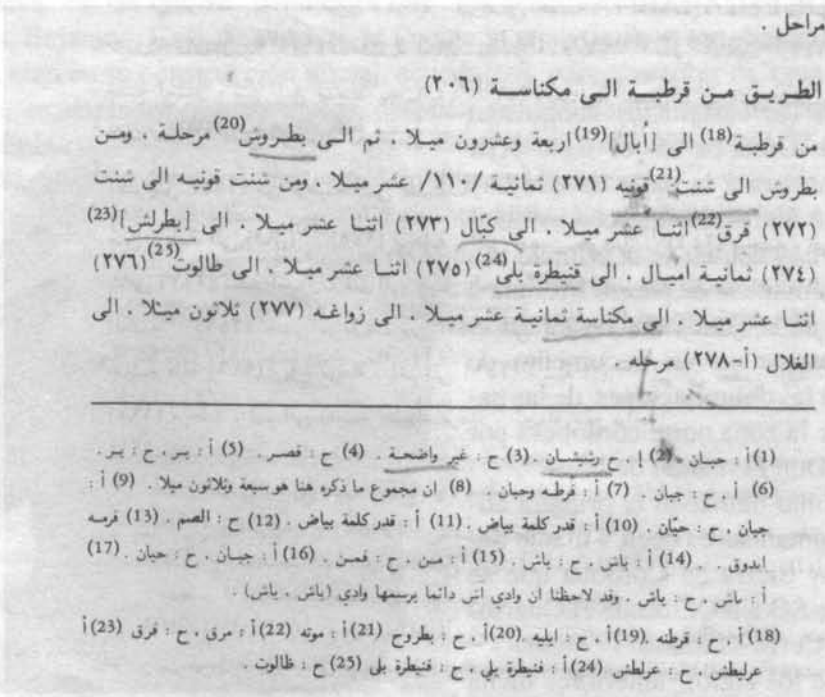 مراحل .
الطريق من قرطبة الى مكناسة (٢٠٦)
من قرطبة (18) الى [أبال] (19) اربعة وعشرون ميلا . ثم الى بطروش (20) مرحلة . ومن
بطروش الى شنت (21) قونيه (٢٧١) ثمانية /١١٠/ عشر ميلا . ومن شنت قونيه الى شنت
(٢٧٢) فرق (22) اثنا عشر ميلا . الى كبّال (٢٧٣) اثنا عشر ميلا . الى [بطرلش] (23)
(٢٧٤) ثمانية اميال . الى قنيطرة بلى (24) (٢٧٥) اثنا عشر ميلا . الى طالوت (25) (٢٧٦)
اثنا عشر ميلا . الى مكناسة ثمانية عشر ميلا . الى زواغه (٢٧٧) ثلاثون ميلا . الى
الغلال (أ-٢٧٨) مرحله .
(1) أ : جيان . (2) ا . ح رشيشان . (3) ح : غير واضحة . (4) ح : قصر . (5) أ : بر . ح : بر .
(6) أ . ح : جيان . (7) أ : قرطه وجيان . (8) ان مجموع ما ذكره هنا هو سبعة وثلاثون ميلا . (9) أ :
جيان . ح : حيّان . (10) أ : قدر كلمة بياض . (11) أ : قدر كلمة بياض . (12) ح : الصم . (13) قرسه
اندوق . (14) أ : باش . ح : ياش . (15) أ : من . ح : فمن . (16) أ : جيان . ح : حيان . (17)
أ : باش . ح : ياش . وقد لاحظنا ان وادي اش دائما يرسمها وادي (باش . ياش) .
(18) أ . ح : قرطنه (19) أ . ح : ابليه (20) أ . ح : بطروح (21) أ : موته (22) أ : مرق . ح : قرق (23) أ
عرليطش . ح : عرلطش (24) أ : قنيطرة يلي . ح : قنيطرة بلى (25) ح : ظالوت .